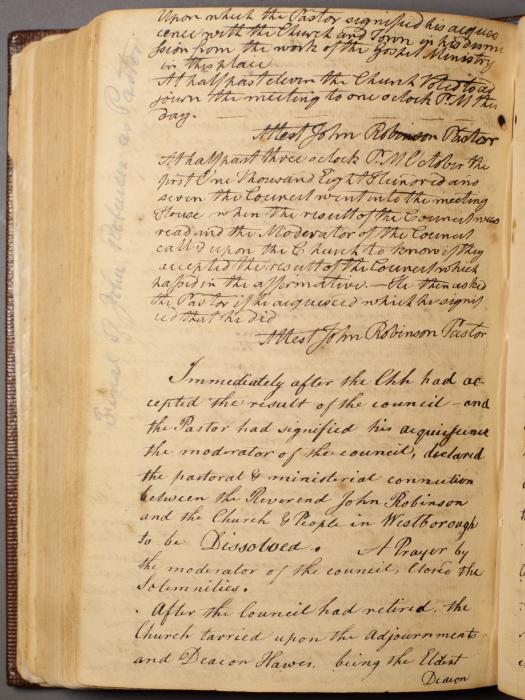 Upon which the Pastor signified his acquies
cence with the Church and Town in his dismi
ssion from the work of the Gospel Ministry
in this place
At half past eleven the Church Voted to ad
journ the meeting to one oclock P.M this
day.
Attest John Robinson Pastor
At half past three oclock P.M. October the
first One Thousand Eight Hundred and
seven the Council went into the meeting
House when the result of the Council was
read and the Moderator of the Council
call'd upon the Church to know if they
accepted the result of the Council which
passed in the affirmative. — He then asked
the Pastor if he aquiesced which he signif
ied that he did
Attest John Robinson Pastor
Immediately after the Chh had ac-
cepted the result of the council — and
the Pastor had signified his acquiescence
the moderator of the council, declared
the pastoral & ministerial connection
between the Reverend John Robinson
and the Church & People in Westborough
to be Dissolved. A Prayer by
the moderator of the council, closed the
Solemnities.
. After the Council had retired, the
Church tarried upon the Adjournment
and Deacon Hawes, being the Eldest
Deacon
John Robinson as Pastor